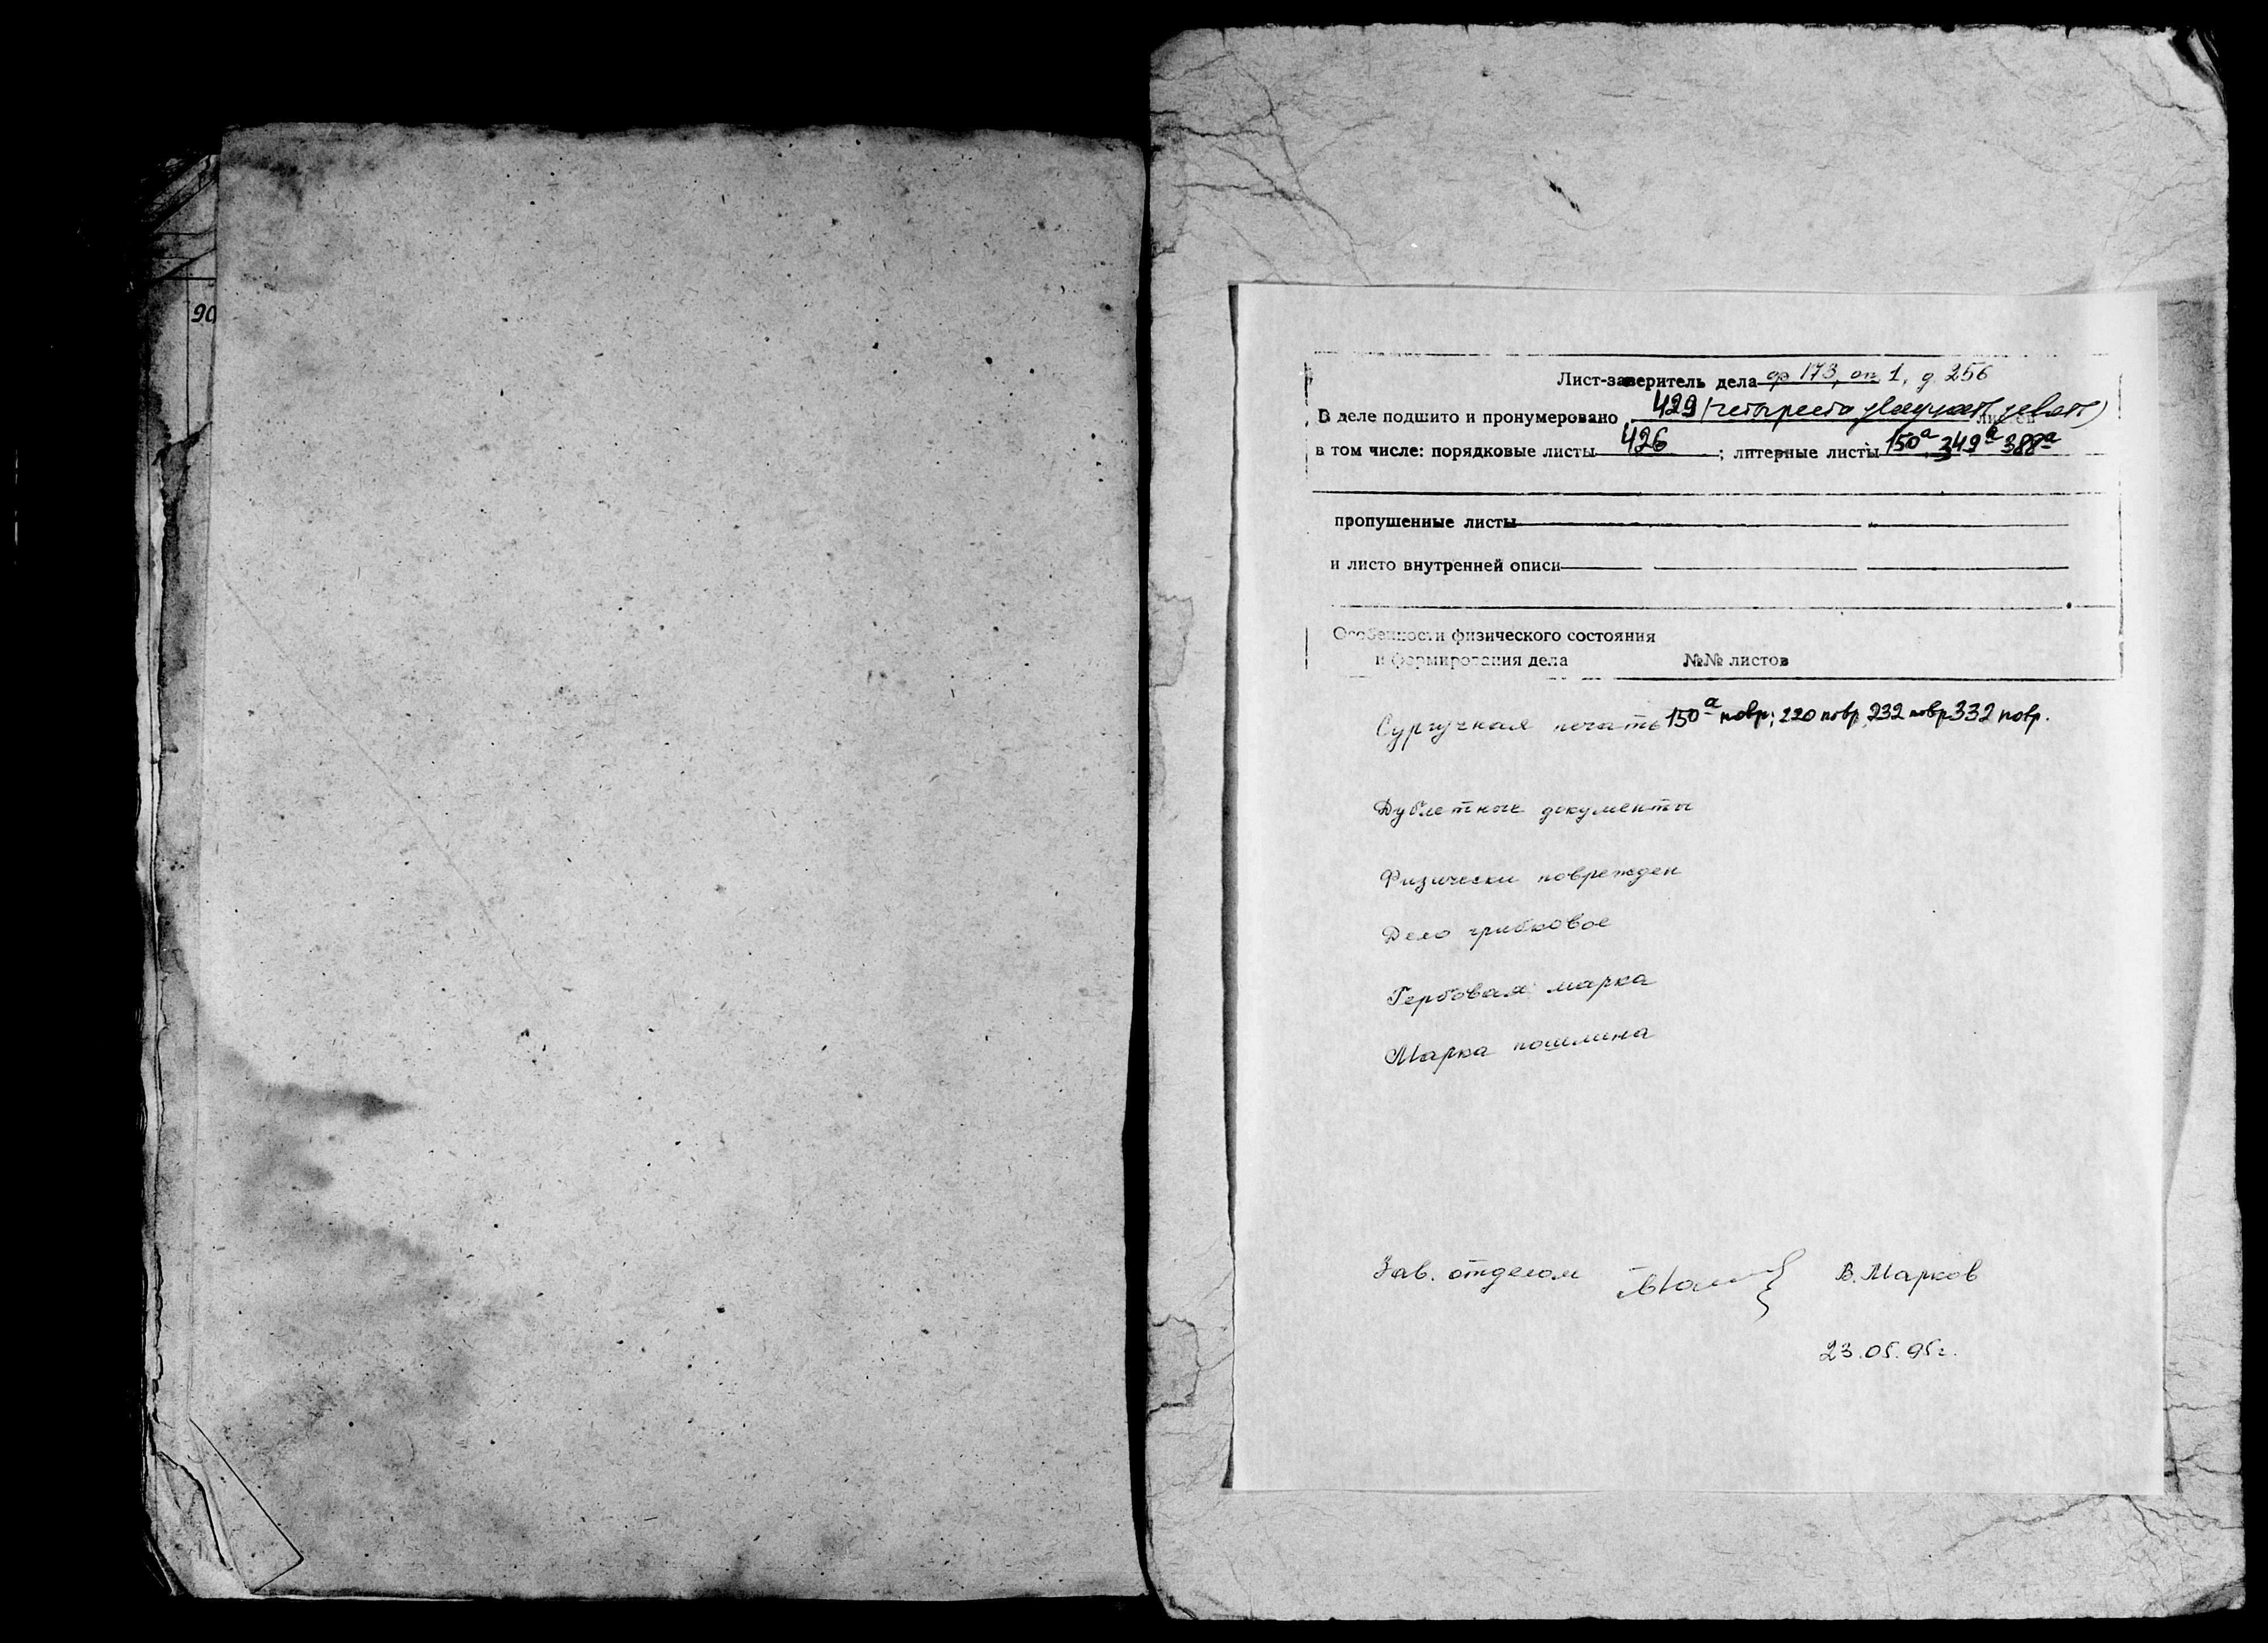 90
Лист-заверитель дела ф 173, оп. 1, д. 256
В деле подшито и пронумеровано 429 (четыреста двадцать девять) листов
в том числе: порядковые листы 426 ; литерные листы 150а, 349а 388а
пропушенные листы
и листо внутренней описи
Особенности физического состояния
и формирования дела №№ листов
Сургучная печать 150а повр; 220 повр, 232 повр 332 повр.
Дублетные документы
Физически поврежден
Дело грибковое
Гербовая марка
Марка пошлина
Зав. отделом В. Марков
23.05.95г.